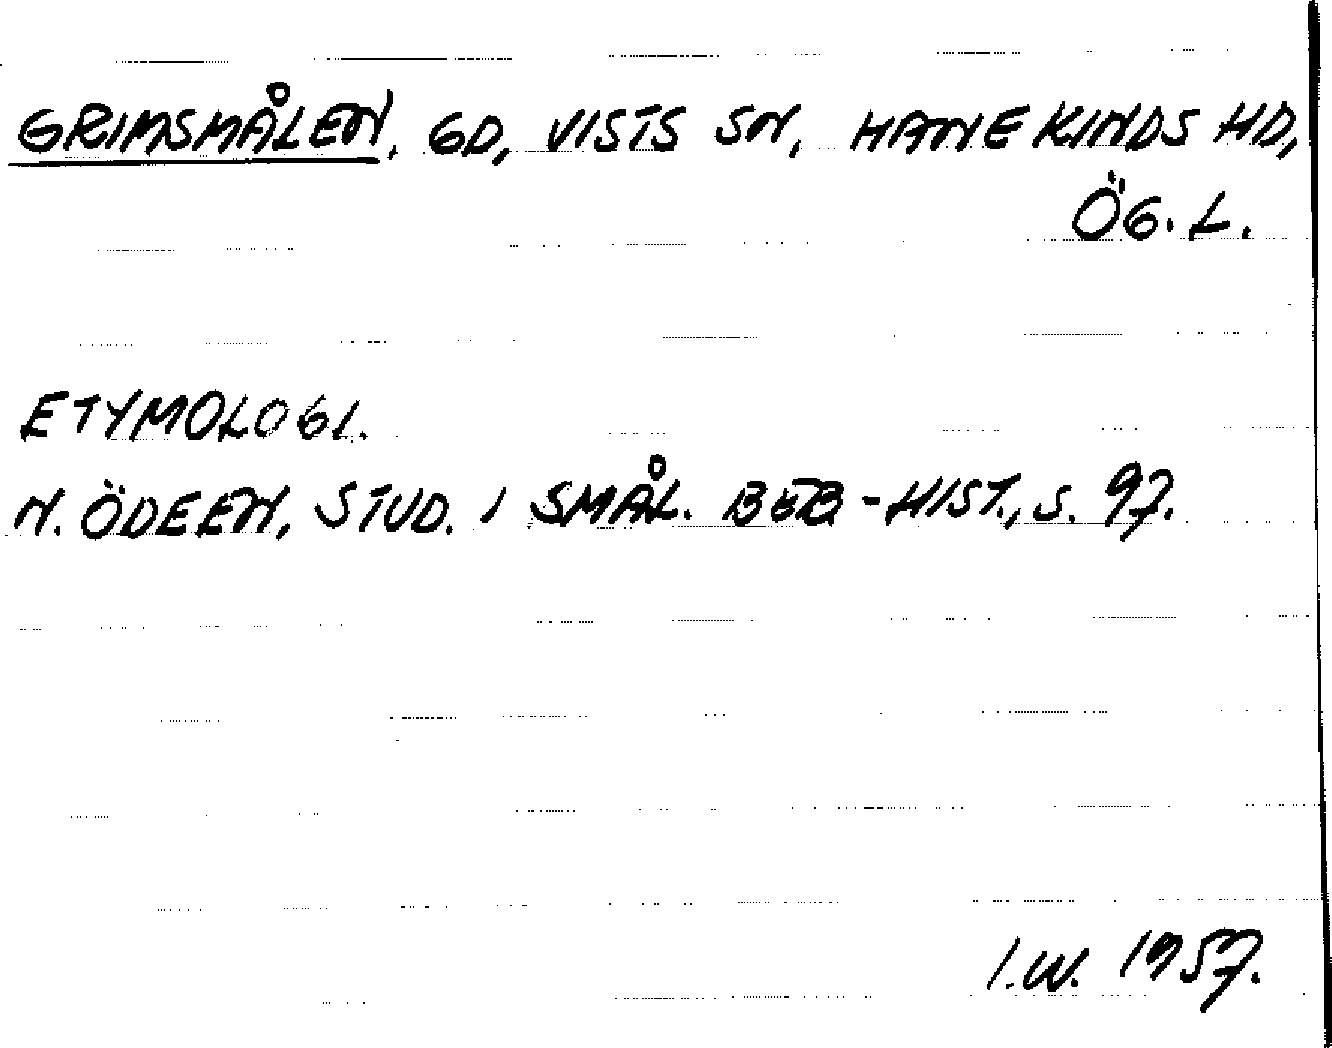 GRIMSMÅLEN, GD, VISTS SN, HANEKINDS HD,
ÖG. L.
ETYMOLOGI.
N. ÖDEEN, STUD. I SMÅL. BEB-HIST., S. 97.
I.W. 1957.